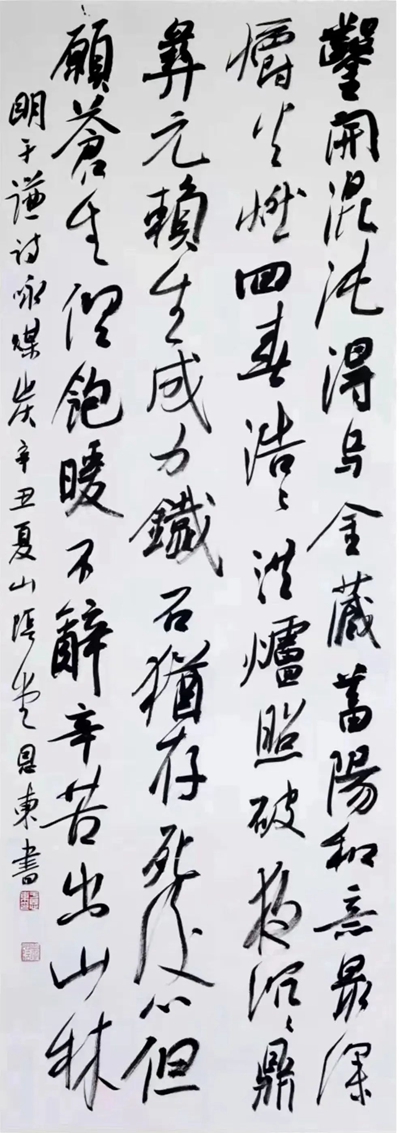 鑿開混沌得烏金藏蓄陽和意最深
爝火燃回春浩〻洪爐照破夜沉〻鼎
彝元賴生成力鐵石猶存死後心但
願蒼生俱飽暖不辭辛苦出山林
明于謙詩咏煤炭辛丑夏山堂東書